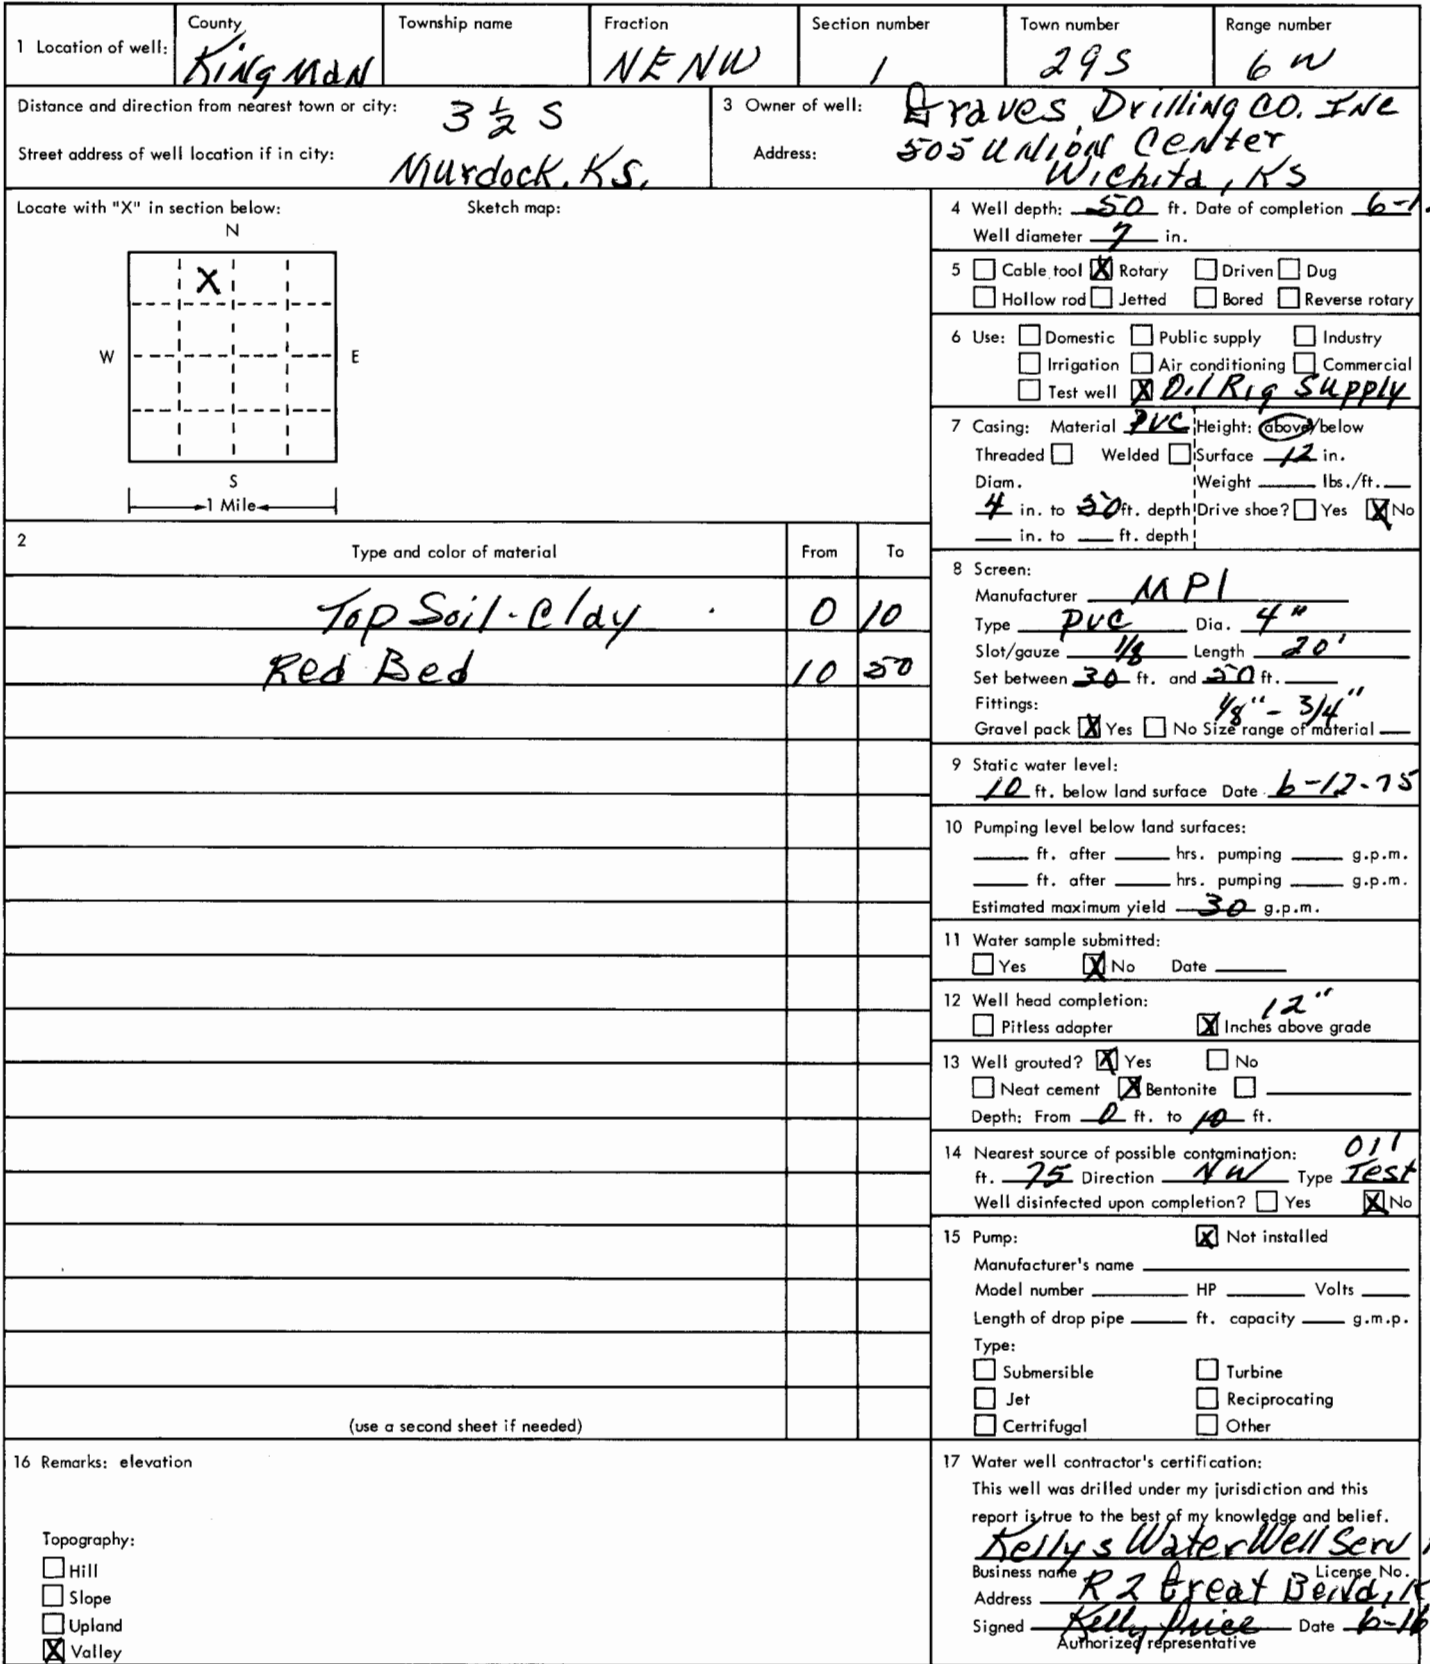 1 Location of well:
County Township name Fraction Section number Town number Range number
KingMaN NENW 1 29S 6W
Distance and direction from nearest town or city: 3 ½ S
Street address of well location if in city: Murdock, Ks.
3 Owner of well: Graves Drilling CO. INC
Address: 505 UNION Center
Wichita, KS
Locate with "X" in section below: Sketch map:
N
X
W E
S
1 Mile
2 Type and color of material From To
Top Soil-Clay 0 10
Red Bed 10 50
(use a second sheet if needed)
16 Remarks: elevation
Topography:
Hill
Slope
Upland
X Valley
4 Well depth: 50 ft. Date of completion 6-1
Well diameter 7 in.
5 Cable tool X Rotary Driven Dug
Hollow rod Jetted Bored Reverse rotary
6 Use: Domestic Public supply Industry
Irrigation Air conditioning Commercial
Test well X Oil Rig Supply
7 Casing: Material PVC Height: above/below
Threaded Welded Surface 12 in.
Diam. Weight lbs./ft.
4 in. to 50 ft. depth Drive shoe? Yes X No
in. to ft. depth
8 Screen:
Manufacturer MPI
Type PVC Dia. 4"
Slot/gauze 1/8 Length 20'
Set between 30 ft. and 50 ft.
Fittings: 1/8" - 3/4"
Gravel pack X Yes No Size range of material
9 Static water level:
10 ft. below land surface Date 6-12-75
10 Pumping level below land surfaces:
ft. after hrs. pumping g.p.m.
ft. after hrs. pumping g.p.m.
Estimated maximum yield 30 g.p.m.
11 Water sample submitted:
Yes X No Date
12 Well head completion: 12"
Pitless adapter X Inches above grade
13 Well grouted? X Yes No
Neat cement X Bentonite
Depth: From 0 ft. to 10 ft.
14 Nearest source of possible contamination: Oil
ft. 75 Direction NW Type Test
Well disinfected upon completion? Yes X No
15 Pump: X Not installed
Manufacturer's name
Model number HP Volts
Length of drop pipe ft. capacity g.m.p.
Type:
Submersible Turbine
Jet Reciprocating
Certrifugal Other
17 Water well contractor's certification:
This well was drilled under my jurisdiction and this
report is true to the best of my knowledge and belief.
Kellys Water Well Serv
Business name License No.
Address R 2 Great Bend, K
Signed Kelly Price Date 6-16
Authorized representative